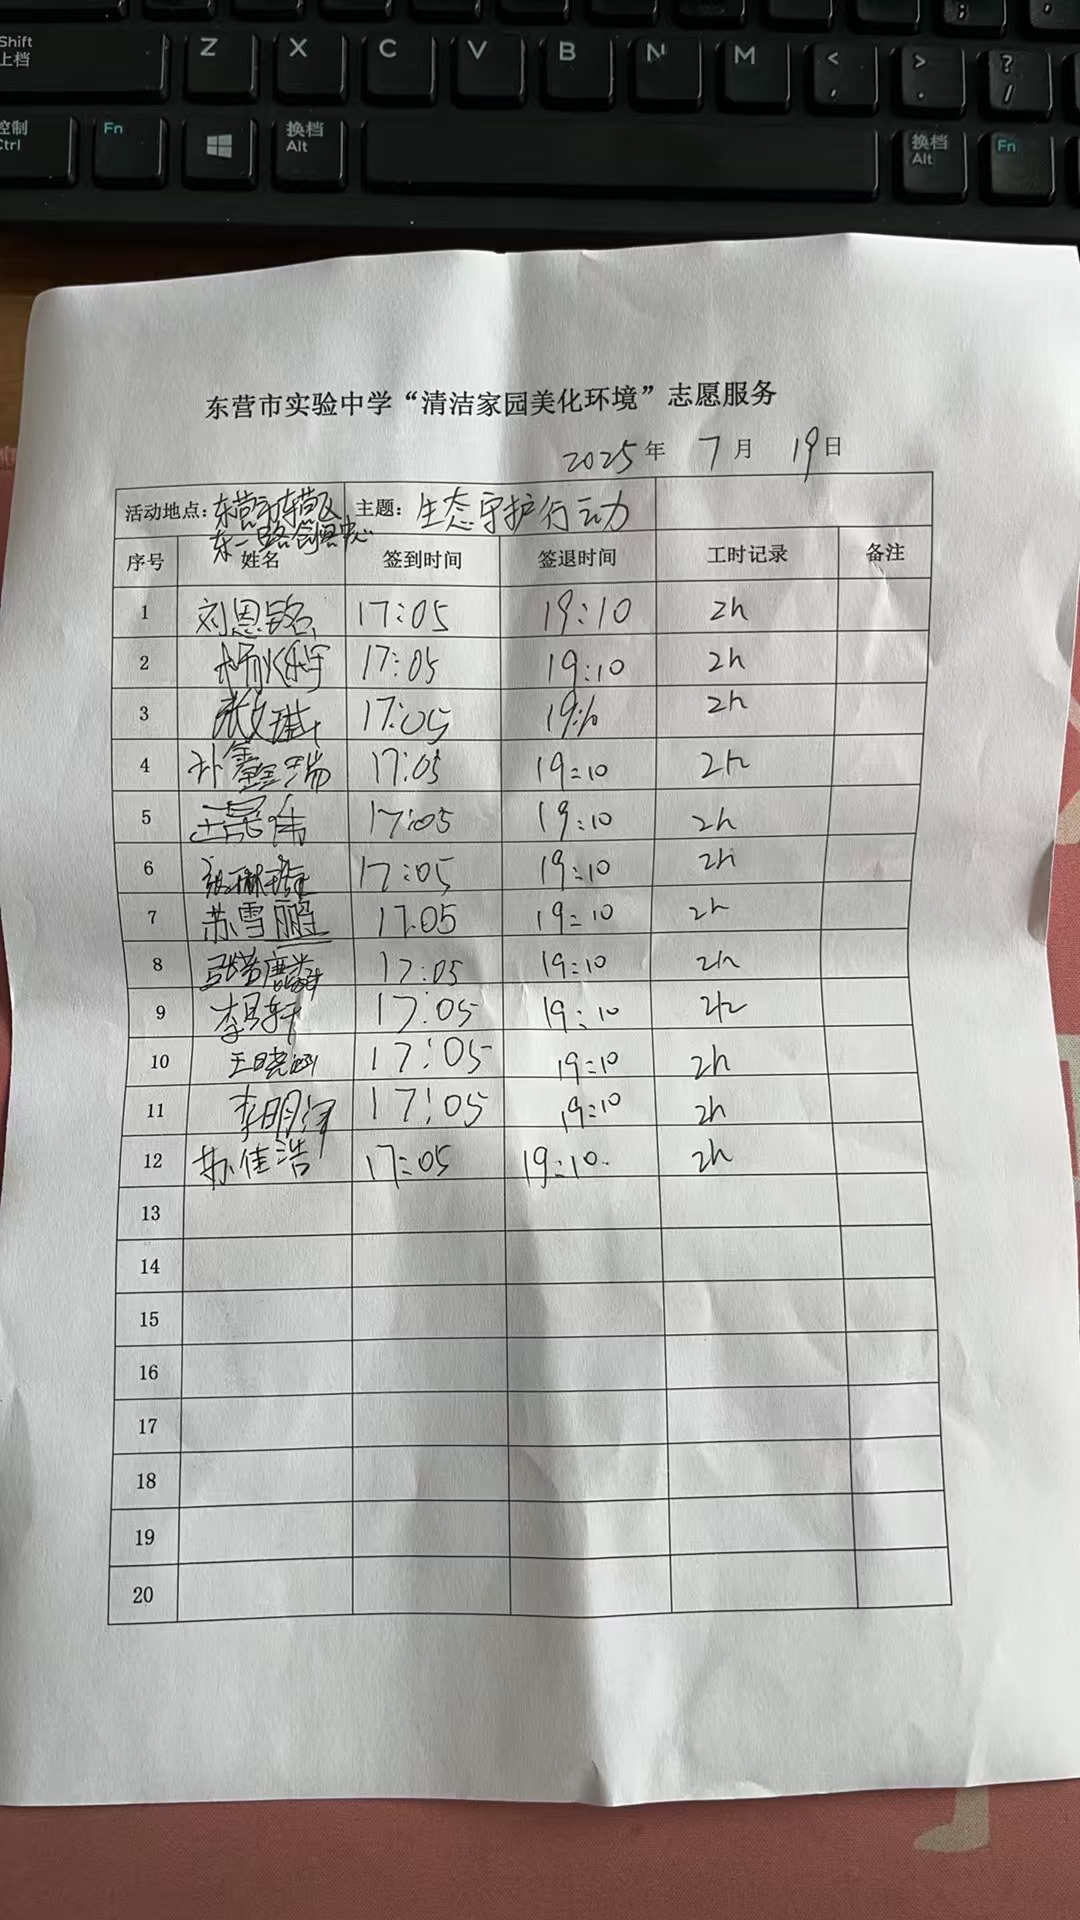 Shift
上档
Z X C V B N M < , > . ? /
控制
Ctrl
Fn
换档
Alt
换档
Alt
Fn
东营市实验中学“清洁家园美化环境”志愿服务
2025年 7月 19日
活动地点：东营市东营区 主题：生态守护行动力
东一路
序号 姓名 签到时间 签退时间 工时记录 备注
1 刘恩铭 17:05 19:10 2h
2 17:05 19:10 2h
3 张文琪 17:05 19:10 2h
4 孙鑫瑞 17:05 19:10 2h
5 17:05 19:10 2h
6 17:05 19:10 2h
7 苏雪鹏 17:05 19:10 2h
8 17:05 19:10 2h
9 17:05 19:10 2h
10 17:05 19:10 2h
11 李明 17:05 19:10 2h
12 苏佳浩 17:05 19:10 2h
13
14
15
16
17
18
19
20